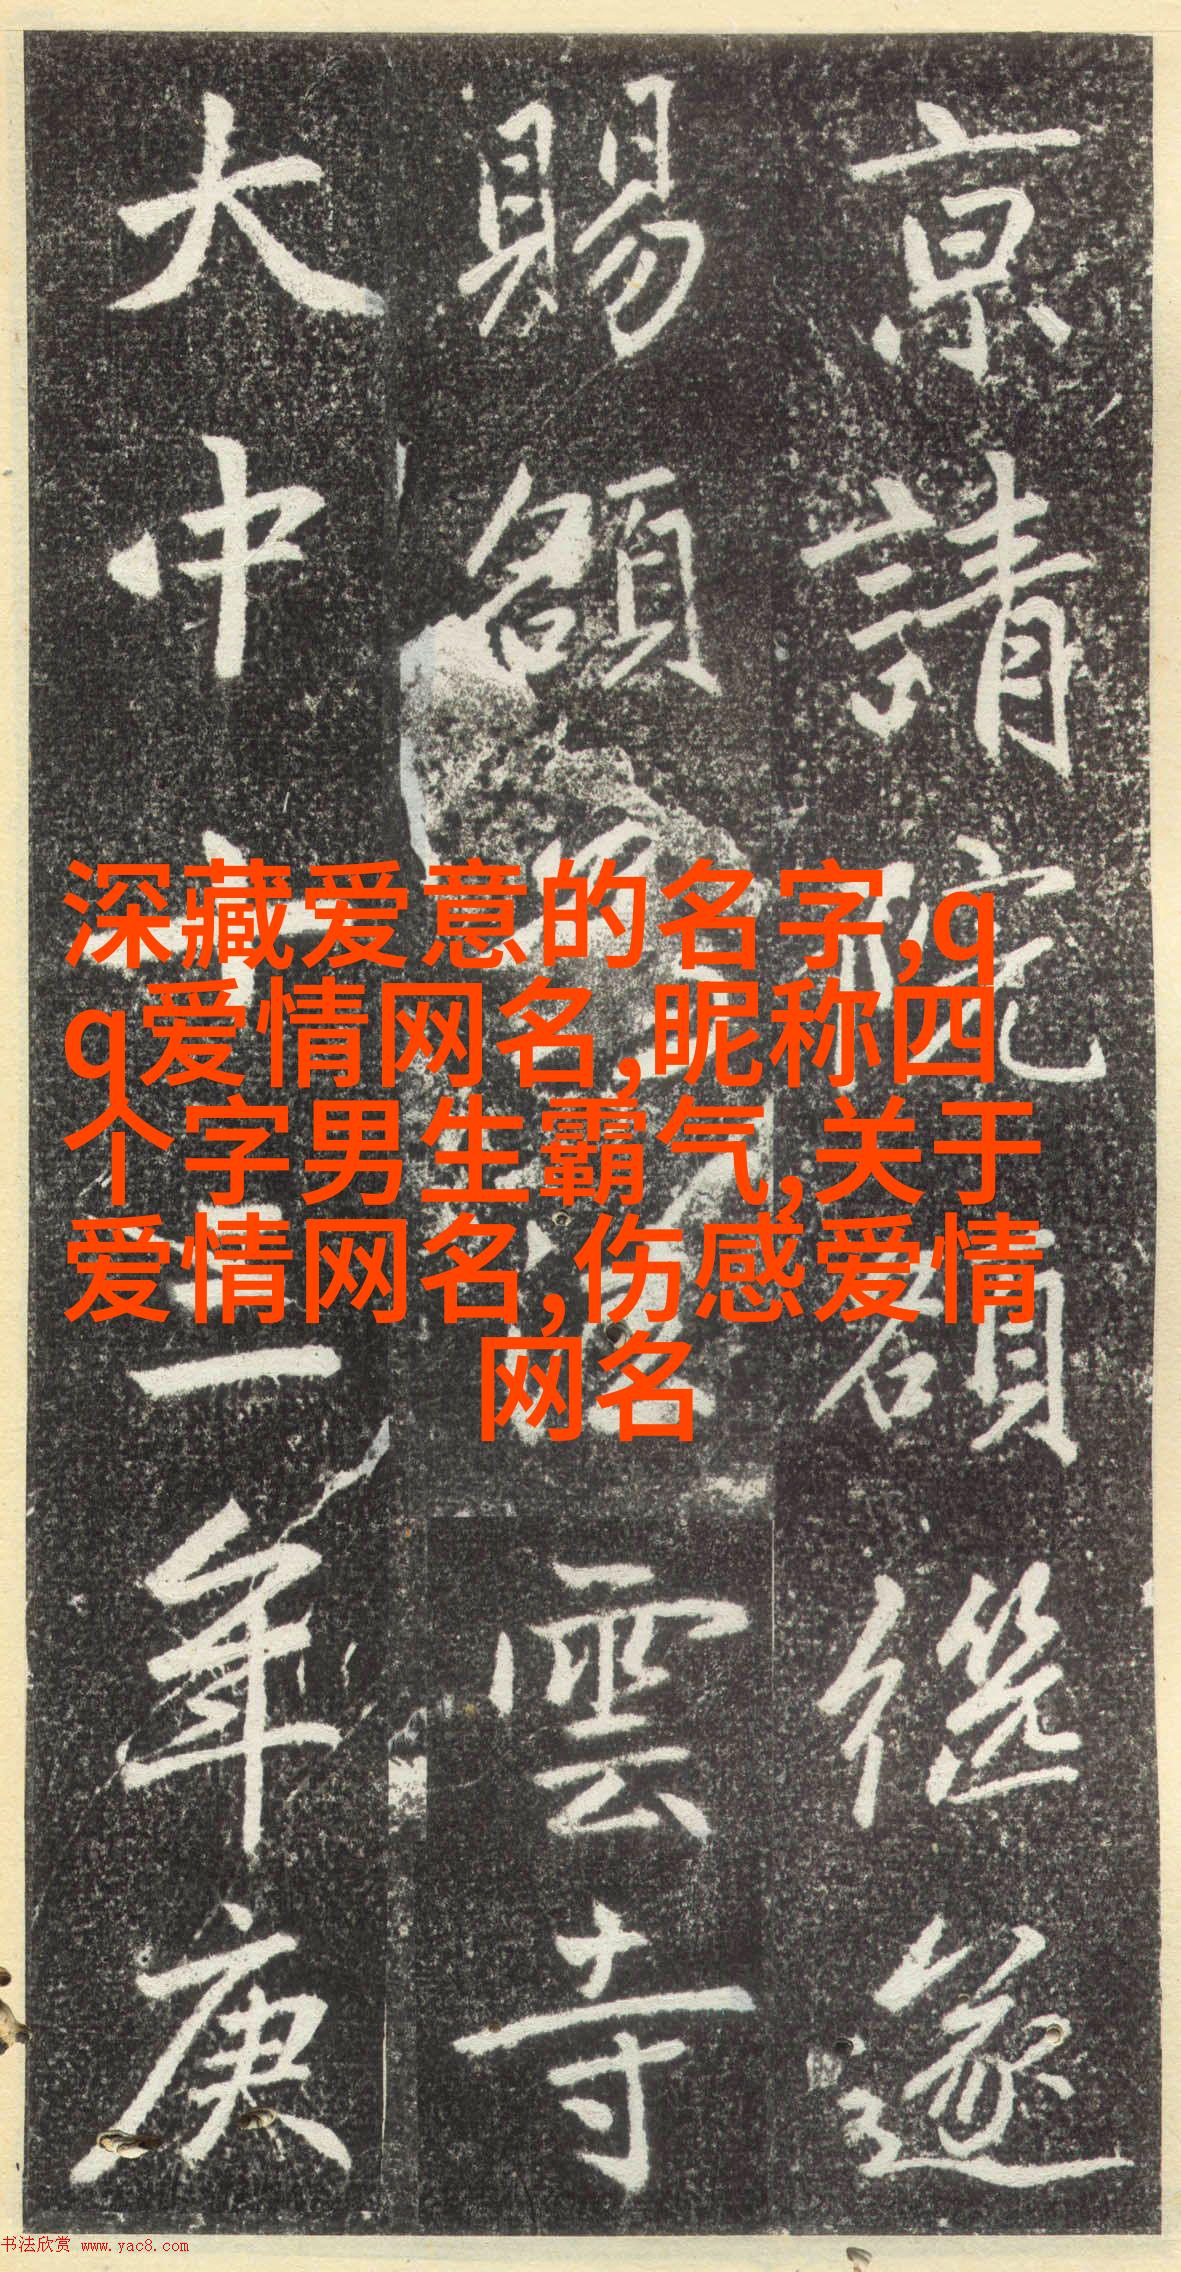 京請院額遂
賜額雲寺
大中十三年庚
深藏爱意的名字,q
q爱情网名,昵称四
个字男生霸气,关于
爱情网名,伤感爱情
网名
书法欣赏 www.yac8.com